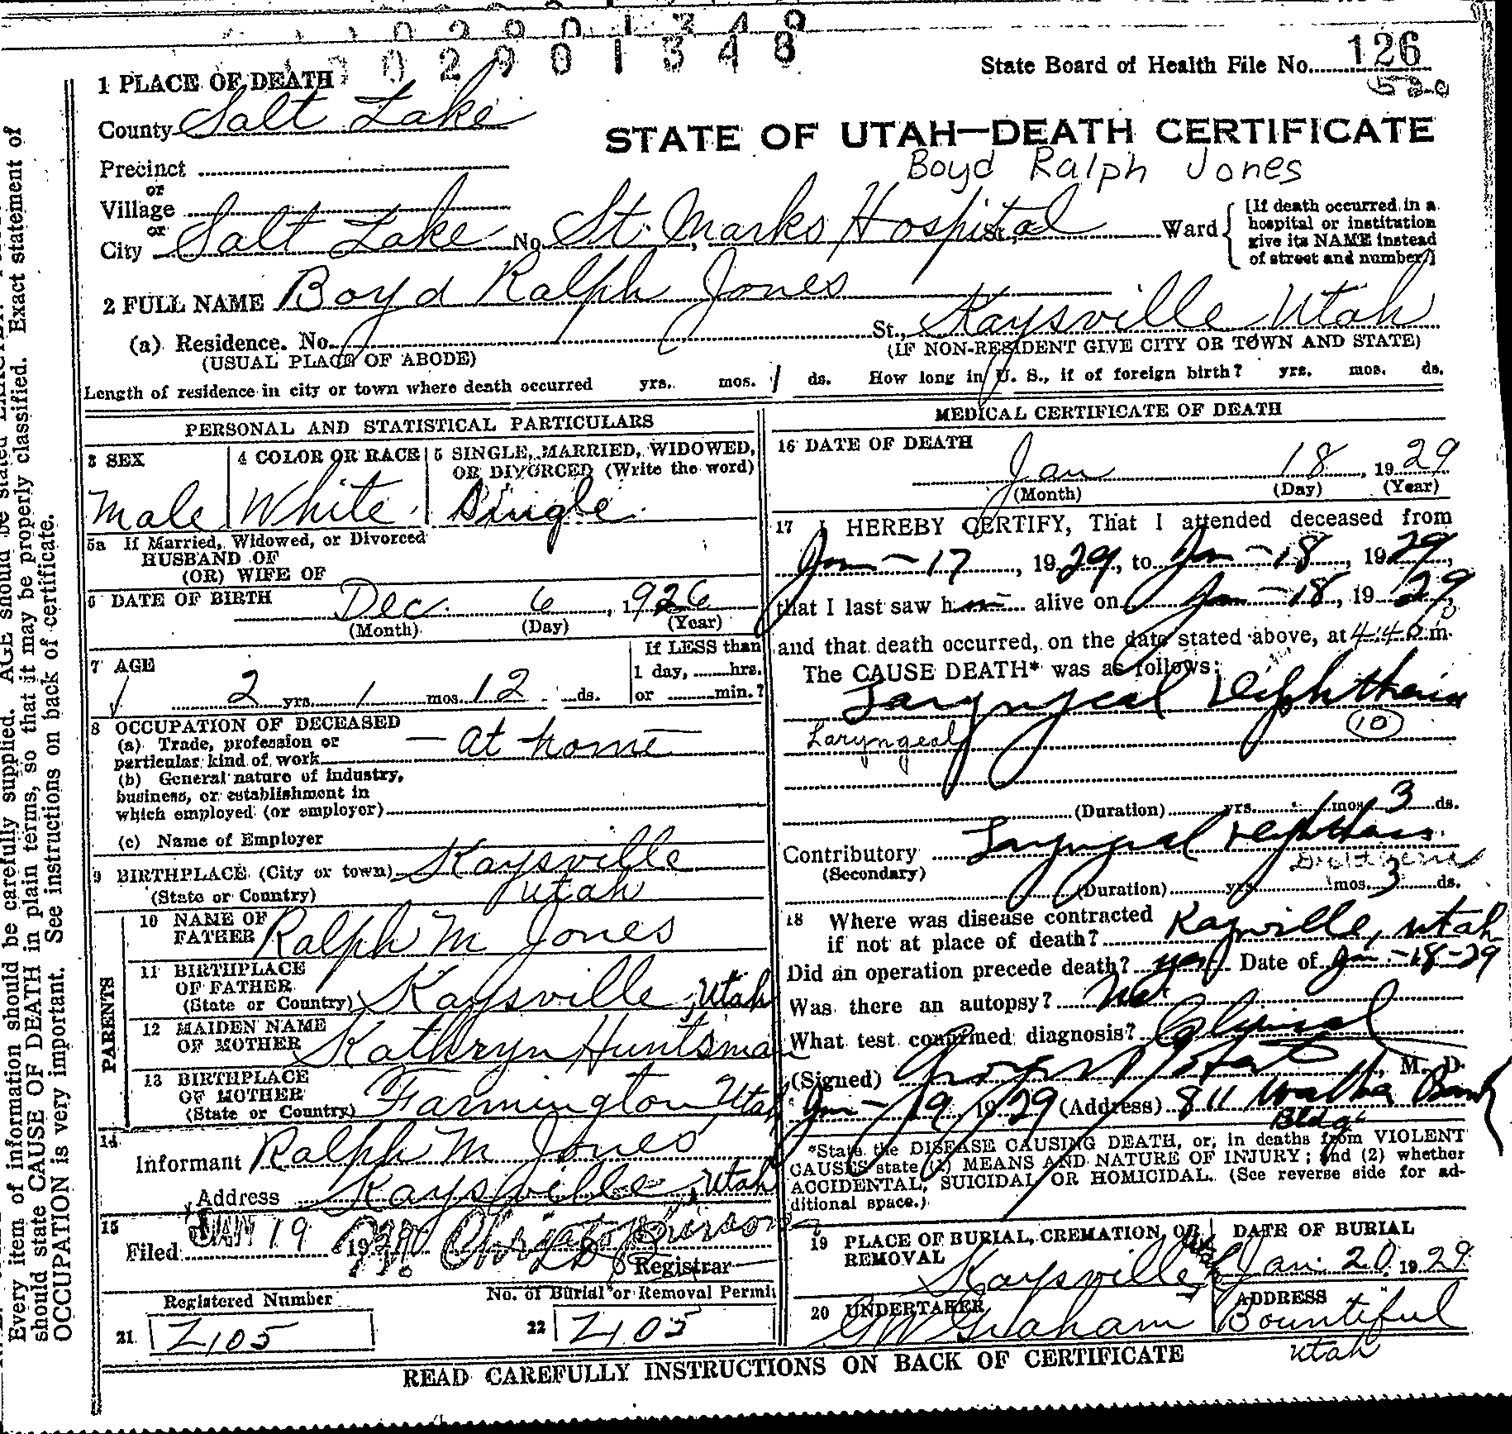 02901348
State Board of Health File No. 126
530
1 PLACE OF DEATH
County Salt Lake
STATE OF UTAH—DEATH CERTIFICATE
Precinct
Boyd Ralph Jones
or
Village
or
City Salt Lake No. St. Marks Hospital St., Ward
[If death occurred in a
hospital or institution
give its NAME instead
of street and number.]
2 FULL NAME Boyd Ralph Jones
(a) Residence. No. St., Kaysville Utah
(USUAL PLACE OF ABODE) (IF NON-RESIDENT GIVE CITY OR TOWN AND STATE)
Length of residence in city or town where death occurred yrs. mos. 1 ds. How long in U. S., if of foreign birth? yrs. mos. ds.
PERSONAL AND STATISTICAL PARTICULARS
3 SEX
Male
4 COLOR OR RACE
White
5 SINGLE, MARRIED, WIDOWED,
OR DIVORCED (Write the word)
Single
5a If Married, Widowed, or Divorced
HUSBAND OF
(OR) WIFE OF
6 DATE OF BIRTH Dec. 6, 1926
(Month) (Day) (Year)
7 AGE
2 yrs. 1 mos. 12 ds.
If LESS than
1 day, hrs.
or min.?
8 OCCUPATION OF DECEASED
(a) Trade, profession or
particular kind of work — at home
(b) General nature of industry,
business, or establishment in
which employed (or employer)
(c) Name of Employer
9 BIRTHPLACE (City or town) Kaysville
(State or Country) Utah
PARENTS
10 NAME OF
FATHER Ralph M Jones
11 BIRTHPLACE
OF FATHER
(State or Country) Kaysville, Utah
12 MAIDEN NAME
OF MOTHER Kathryn Huntsman
13 BIRTHPLACE
OF MOTHER
(State or Country) Farmington Utah
14
Informant Ralph M Jones
Address Kaysville, Utah
15
Filed JAN 19 1929
Registrar
Registered Number
21 Z105
No. of Burial or Removal Permit
22 Z105
MEDICAL CERTIFICATE OF DEATH
16 DATE OF DEATH
Jan 18, 1929
(Month) (Day) (Year)
17 I HEREBY CERTIFY, That I attended deceased from
Jan - 17, 1929, to Jan - 18, 1929,
that I last saw him alive on Jan - 18, 1929,
and that death occurred, on the date stated above, at 4:40 m.
The CAUSE DEATH* was as follows:
Laryngeal Diphtheria
Laryngeal (10)
(Duration) yrs. mos. 3 ds.
Contributory Laryngeal Diphtheria
(Secondary) Diphtheria
(Duration) yrs. mos. 3 ds.
18 Where was disease contracted
if not at place of death? Kaysville, Utah
Did an operation precede death? yes Date of Jan - 18-29
Was there an autopsy? No
What test confirmed diagnosis? Clinical
(Signed) M. D.
Jan - 19 1929 (Address) 811 Walker Bank
Bldg
*State the DISEASE CAUSING DEATH, or, in deaths from VIOLENT
CAUSES state (1) MEANS AND NATURE OF INJURY; and (2) whether
ACCIDENTAL, SUICIDAL OR HOMICIDAL. (See reverse side for ad-
ditional space.)
19 PLACE OF BURIAL, CREMATION, OR
REMOVAL
Kaysville Utah
DATE OF BURIAL
Jan. 20, 1929
20 UNDERTAKER
G W Graham
ADDRESS
Bountiful
Utah
READ CAREFULLY INSTRUCTIONS ON BACK OF CERTIFICATE
Every item of information should be carefully supplied. AGE should be stated
should state CAUSE OF DEATH in plain terms, so that it may be properly classified. Exact statement of
OCCUPATION is very important. See instructions on back of certificate.